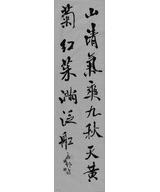 山清氣爽九秋天黃
菊紅葉滿泛船